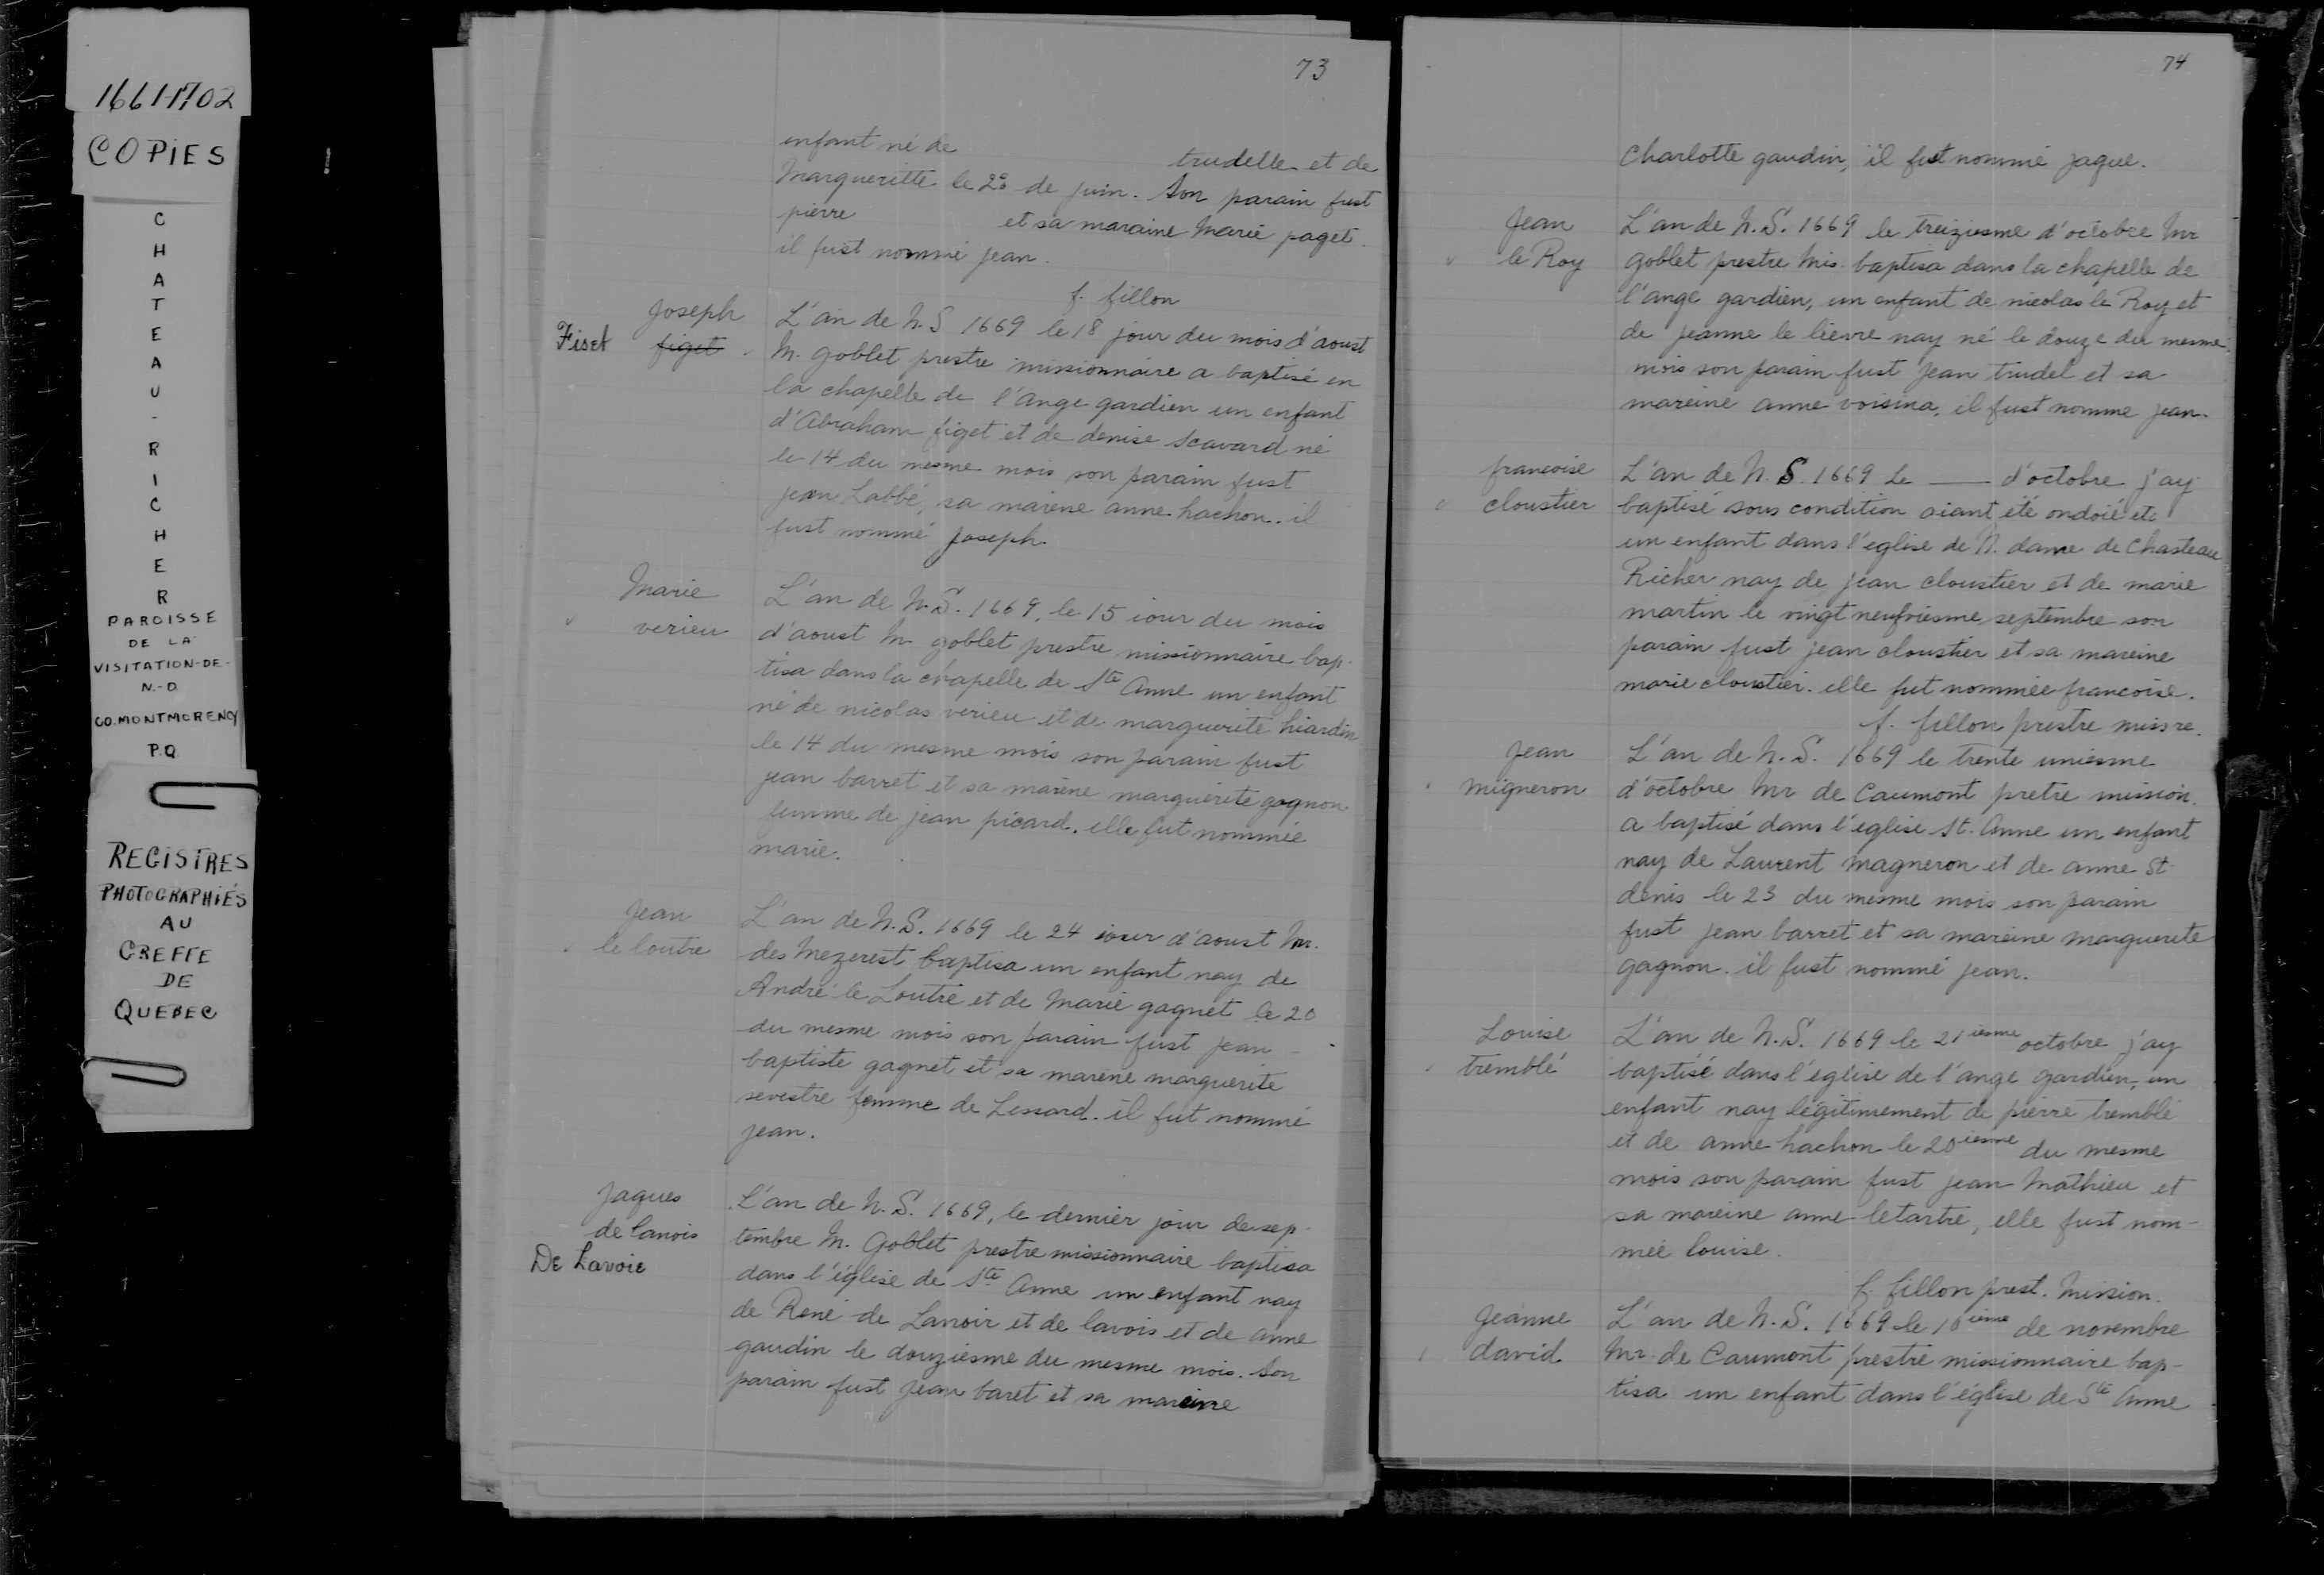 1661-1702
COPIES
CHATEAU-RICHER
PAROISSE
DE LA
VISITATION-DE-
N.-D
CO. MONTMORENCY
P.Q
REGISTRES
PHOTOGRAPHIÉS
AU
GREFFE
DE
QUEBEC
73
enfant né de trudelle et de
Margueritte le de juin. Son parain fust
pierre et sa maraine Marie paget.
il fust nommé jean.
f. fillon
Joseph
Fiset figet
L'an de N.S 1669 le 18 jour du mois d'aoust
M. goblet prestre missionnaire a baptisé en
la chapelle de l'ange gardien un enfant
d'Abraham figet et de denise Scavard né
le 14 du mesme mois son parain fust
jean Labbé, sa marene anne hachon. il
fust nommé Joseph.
Marie
verieu
L'an de N.S. 1669, le 15 iour du mois
d'aoust M. goblet prestre missionnaire bap-
tisa dans la chapelle de Ste Anne un enfant
né de nicolas verieu et de marguerite hiardin
le 14 du mesme mois son parain fust
jean barret et sa marene marguerite gagnon
femme de jean picard. elle fut nommée
marie.
Jean
le loutre
L'an de N.S. 1669 le 24 iour d'aoust Mr.
des Mezerest baptisa un enfant nay de
André le Loutre et de Marie gagnet le 20
du mesme mois son parain fust jean
baptiste gagnet et sa marene marguerite
sevestre femme de Lessard. il fut nommé
jean.
Jaques
de lanois
De Lavoie
L'an de N.S. 1669, le dernier jour de sep-
tembre M. Goblet prestre missionnaire baptisa
dans l'église de Ste Anne un enfant nay
de René de Lanoir et de lavois et de anne
gaudin le douziesme du mesme mois. Son
parain fust jean baret et sa mareine
74
Charlotte gaudin, il fust nommé jaque.
Jean
le Roy
L'an de N.S. 1669 le treiziesme d'octobre Mr
goblet prestre Mis. baptisa dans la chapelle de
l'ange gardien, un enfant de nicolas le Roy et
de jeanne le lievre nay né le douze du mesme
mois son parain fust jean trudel et sa
mareine anne voisina, il fust nomme jean.
francoise
cloustier
L'an de N.S. 1669 le — d'octobre j'ay
baptisé sous condition aiant été ondoié etc
un enfant dans l'eglise de N. dame de Chasteau
Richer nay de jean cloustier et de marie
martin le vingt neufviesme septembre son
parain fust jean cloustier et sa mareine
marie cloustier. elle fut nommée francoise.
f. fillon prestre missre.
Jean
migneron
L'an de N.S. 1669 le trente uniesme
d'octobre Mr de Caumont pretre mission.
a baptisé dans l'eglise St. Anne un enfant
nay de Laurent Magneron et de anne St
denis le 23 du mesme mois son parain
fust jean barret et sa mareine marguerite
gagnon. il fust nommé jean.
Louise
tremblé
L'an de N.S. 1669 le 21iesme octobre j'ay
baptisé dans l'église de l'ange gardien, un
enfant nay légitimement de pierre tremblé
et de anne hachon le 20iesme du mesme
mois son parain fust jean Mathieu et
sa mareine anne letartre, elle fust nom-
mée louise.
f. fillon prest. Mission.
Jeanne
david
L'an de N.S. 1669 le de novembre
Mr de Caumont prestre missionnaire bap-
tisa un enfant dans l'église de Ste Anne